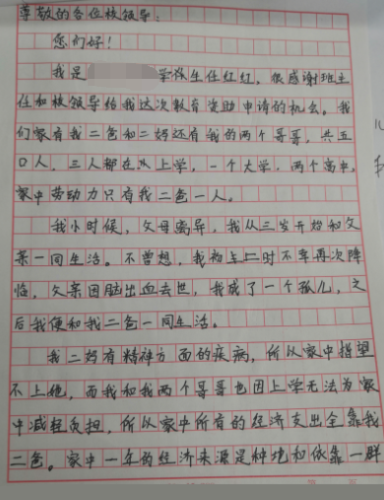 尊敬的各位校领导:
您们好!
我是 学校生任红红,很感谢班主
任和校领导给我这次教育资助申请的机会。我
们家有我二爸和二妈还有我的两个哥哥,共五
口人,三人都在外上学,一个大学,两个高中,
家中劳动力只有我二爸一人。
我小时候,父母离异,我从三岁开始和父
亲一同生活。不曾想,我初上二时不幸再次降
临,父亲因脑出血去世,我成了一个孤儿,之
后我便和我二爸一同生活。
我二妈有精神方面的疾病,所以家中指望
不上她,而我和我两个哥哥也因上学无法为家
中减轻负担,所以家中所有的经济支出全靠我
二爸。家中一年的经济来源是种地和依靠一群